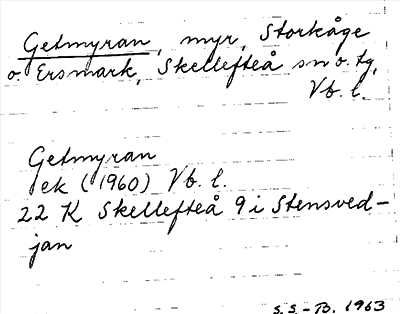 Getmyran, myr, Storkåge
o. Ersmark, Skellefteå sn o. tg,
Vb. l.
Getmyran
ek (1960) Vb. l.
22 K Skellefteå 9 i Stensved-
jan
S.S.-B. 1963